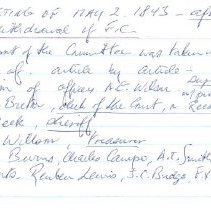 TING OF MAY 2, 1843 after
withdrawal of F.C.
ort of the Committee was taken u
of. article by article.
n of officers A.E. Wilson Sup
Breton, clerk of the Court, or Reco
eek, sheriff
Willson, Treasurer
Burns, Charles Campo, A.T. Smith
nts. Reuben Lewis, S.C. Bridge, Fx